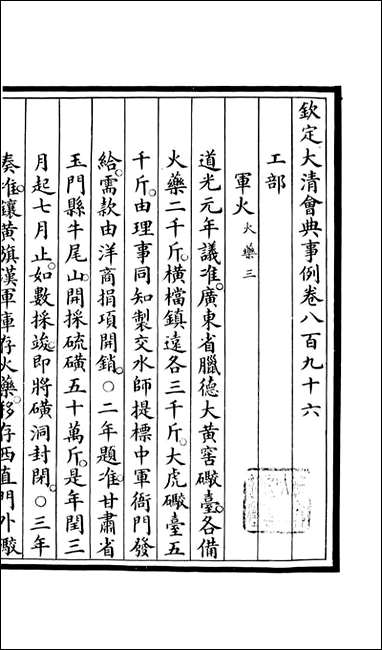 欽定大清會典事例卷八百九十六
工部
軍火火藥三
道光元年議准。廣東省臘德大黃窖礮臺。各備
火藥二千斤。橫檔鎮遠各三千斤。大虎礮臺五
千斤。由理事同知製交水師提標中軍衙門發
給。需款由洋商捐項開銷。○二年題准。甘肅省
玉門縣牛尾山。開採硫磺五十萬斤。是年閏三
月起七月止。如數採竣。即將磺洞封閉。○三年
奏准。鑲黃旗漢軍庫存火藥。移存西直門外礮